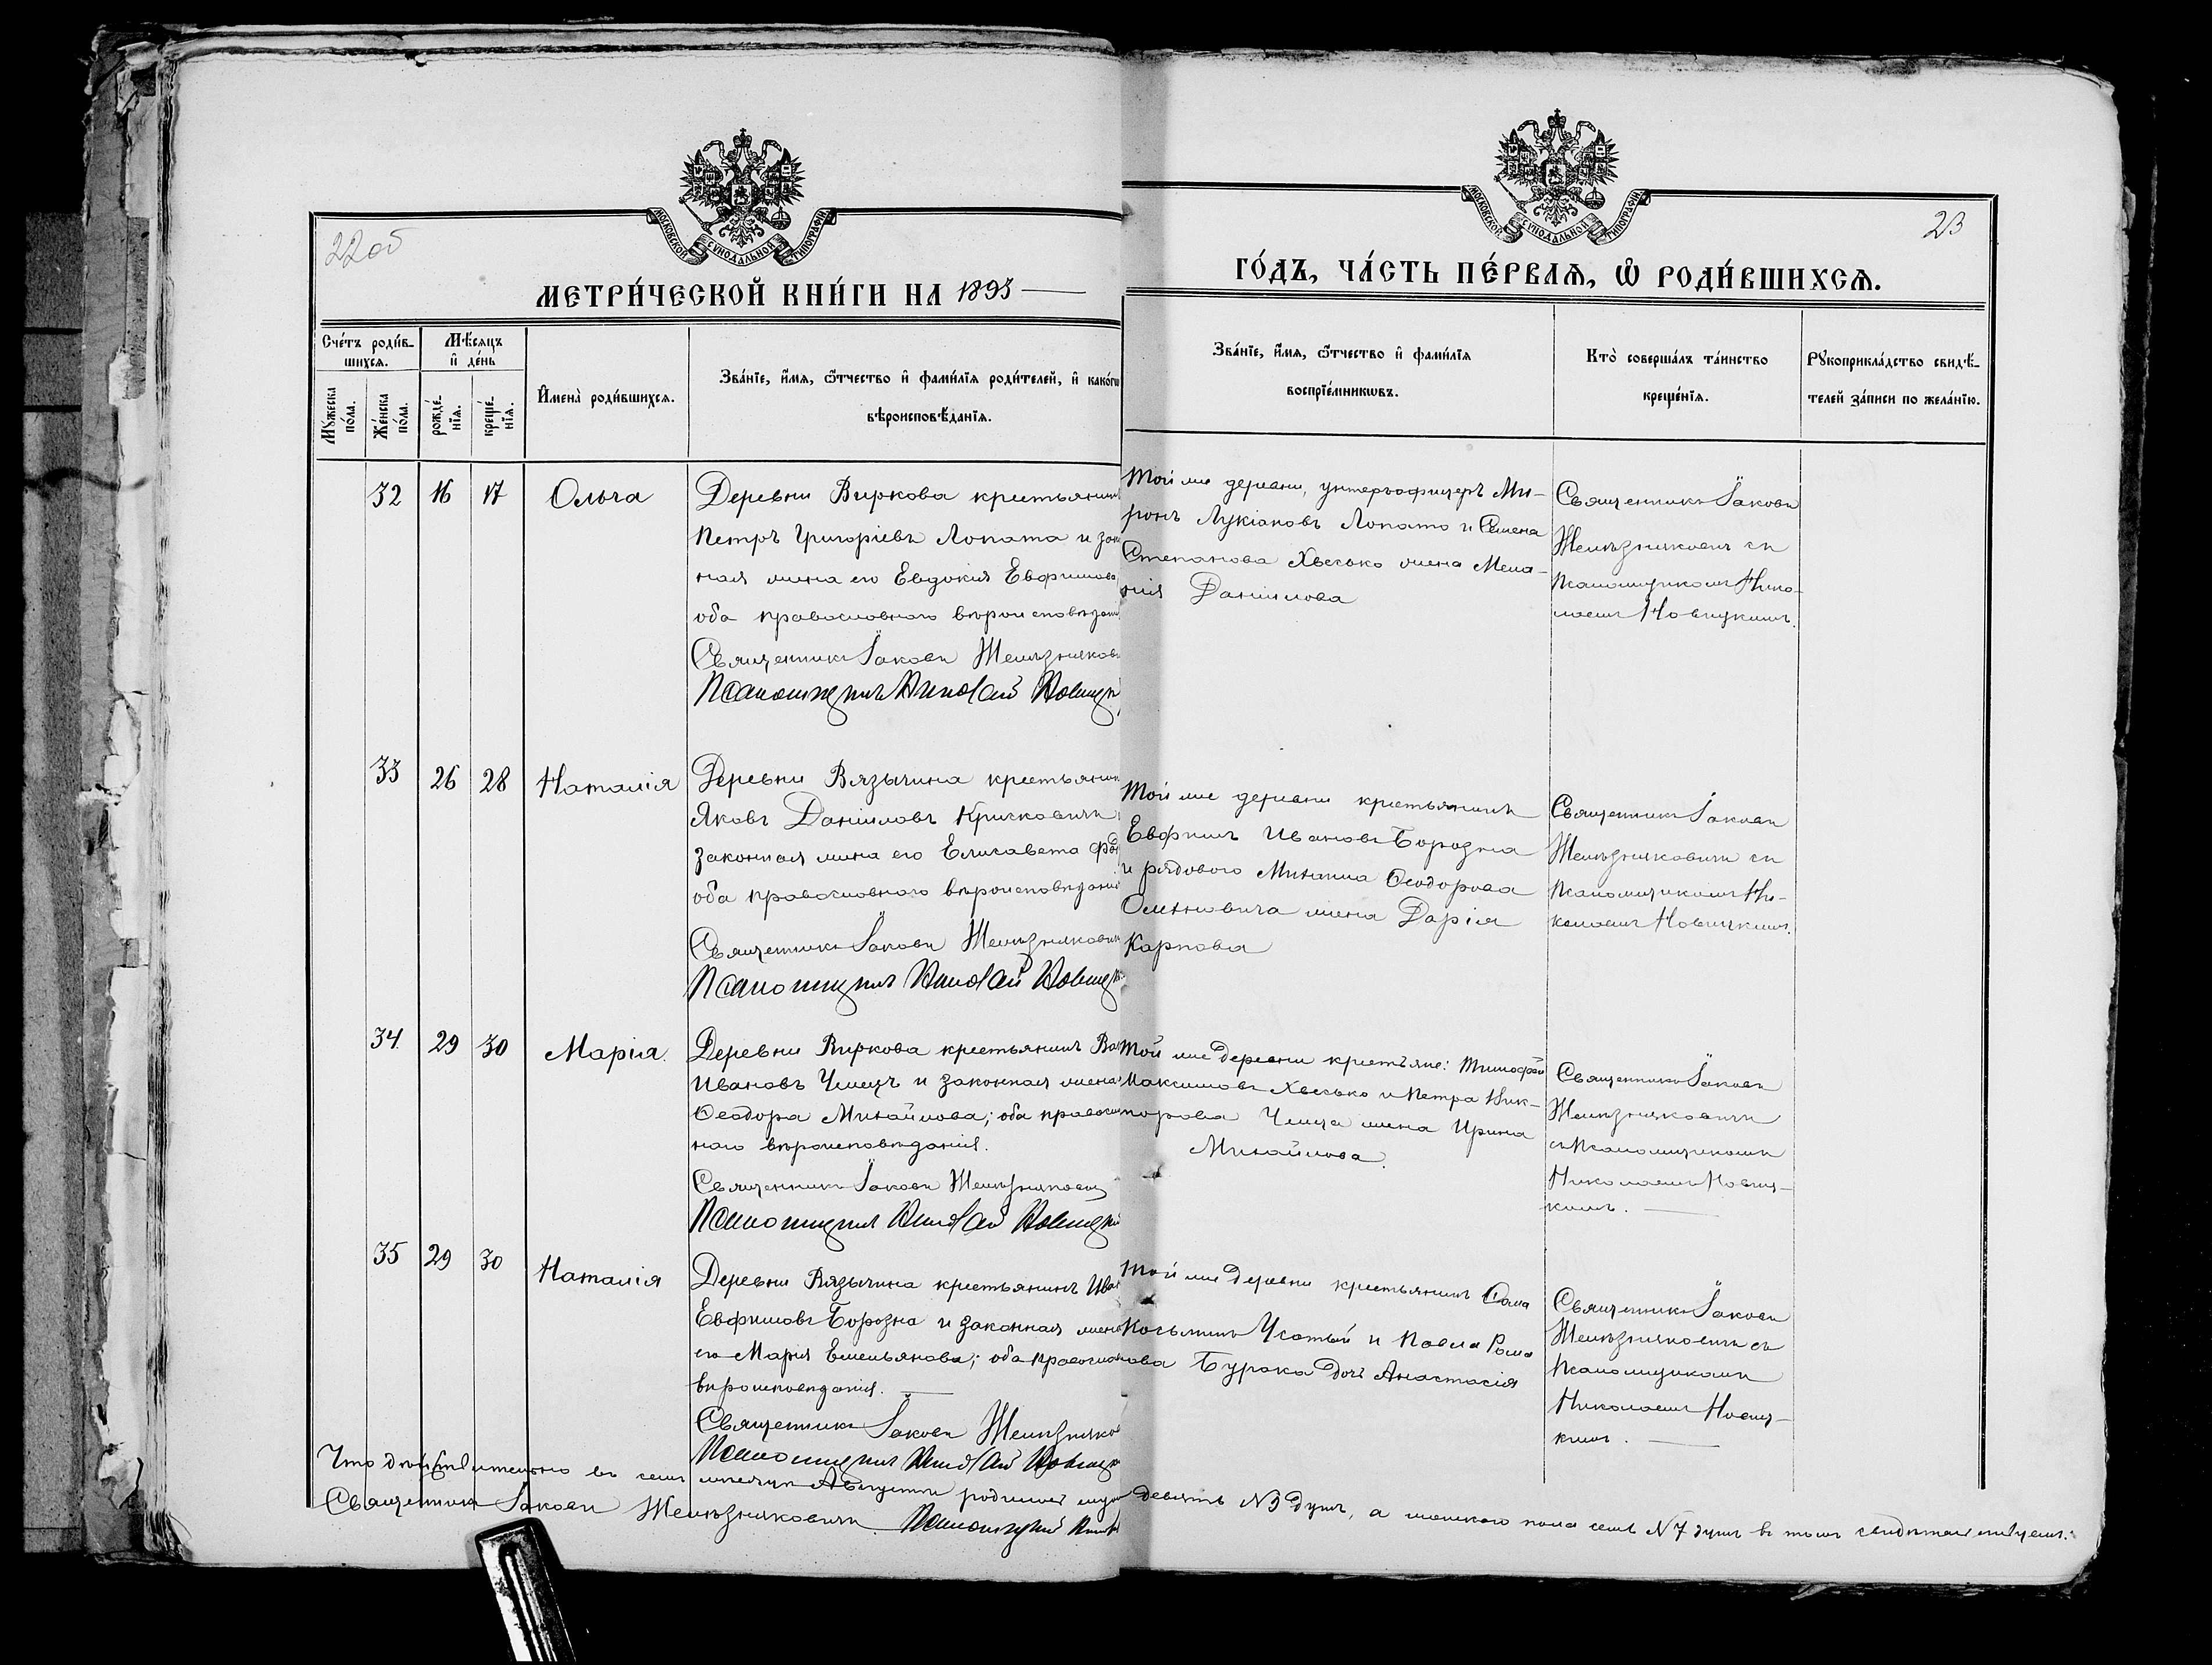 22 об
МОСКОВСКОЙ СѴНОДАЛЬНОЙ ТИПОГРАФІИ
МЕТРИ́ЧЕСКОЙ КНИ́ГИ НА 1893
Сче́тъ роди́в-
шихсѧ.
Мꙋ́жеска
по́ла.
Же́нска
по́ла.
Мѣ́сѧцъ
и҆ де́нь
рожде́-
нїѧ.
креще́-
нїѧ.
И҆мена̀ роди́вшихсѧ.
Зва́нїе, и҆́мѧ, ѻ҆́тчество и҆ фами́лїѧ роди́телей, и҆ како́гѡ
вѣроисповѣ́данїѧ.
32 16 17 Ольга
Деревни Виркова крестьянинъ
Петръ Григоріевъ Лопата и зако
ная жена его Евдокія Евфимова
оба православнаго вѣроисповѣдан
Священникъ Іаковъ Желѣзняков
Псаломщикъ Николай Новицк
33 26 28 Наталія
Деревни Вязычина крестьянин
Яковъ Даніиловъ Кричковичъ
законная жена его Елисавета
оба православнаго вѣроисповѣдані
Священникъ Іаковъ Желѣзнякович
Псаломщикъ Николай Новицк
34 29 30 Марія.
Деревни Виркова крестьянинъ Ва
Ивановъ Чмицъ и законная жена
Ѳеодора Михайлова; оба правосл
наго вѣроисповѣданія.
Священникъ Іаковъ Желѣзнякович
Псаломщикъ Николай Новицкій
35 29 30 Наталія
Деревни Вязычина крестьянинъ Иван
Евфимовъ Борозна и законная жена
его Марія Емельянова; оба православ
вѣроисповѣданія.
Священникъ Іаковъ Желѣзняков
Псаломщикъ Николай Новицк
Что дѣйствительно въ семъ мѣсяцѣ Августѣ родилось муж
Священникъ Іаковъ Желѣзняковичъ. Псаломщикъ Ник
23
МОСКОВСКОЙ СѴНОДАЛЬНОЙ ТИПОГРАФІИ
ГО́ДЪ, ЧА́СТЬ ПЕ́РВАѦ, Ѡ҆ РОДИ́ВШИХСѦ.
Зва́нїе, и҆́мѧ, ѻ҆́тчество и҆ фами́лїѧ
воспрїе́мникѡвъ.
Кто̀ соверша́лъ та́инство
креще́нїѧ.
Рꙋкоприкла́дство свидѣ́-
телей за́писи по жела́нїю.
Той же деревни, унтеръофицеръ Ми-
ронъ Лукіановъ Лопато и Семена
Степанова Хвесько жена Мела-
нія Даніилова
Священникъ Іаковъ
Желѣзняковичъ съ
Псаломщикомъ Нико-
лаемъ Новицкимъ.
Той же деревни крестьянинъ
Евфимъ Ивановъ Борозна
и рядового Михаила Ѳеодорова
жена Дарія
Карпова
Священникъ Іаковъ
Желѣзняковичъ съ
Псаломщикомъ Ни-
колаемъ Новицкимъ.
Той же деревни крестьяне: Тимофей
Максимовъ Хвесько и Петра Ник-
порова Чмица жена Ирина
Михайлова.
Священникъ Іаковъ
Желѣзняковичъ
съ Псаломщикомъ
Николаемъ Новиц-
кимъ.
Той же деревни крестьянинъ Сама
Косьминъ Усатый и Павла Рома
нова Бурака дочь Анастасія
Священникъ Іаковъ
Желѣзняковичъ съ
Псаломщикомъ
Николаемъ Новиц-
кимъ.
девять №9 душъ, а женскаго пола семь №7 душъ въ томъ свидѣтельствуемъ: